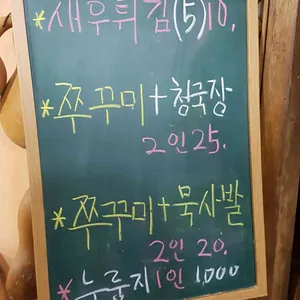 *새우튀김(5)10.
*쭈꾸미+청국장
2인25.
*쭈꾸미+묵사발
2인 20.
*누룽지1인 1,000